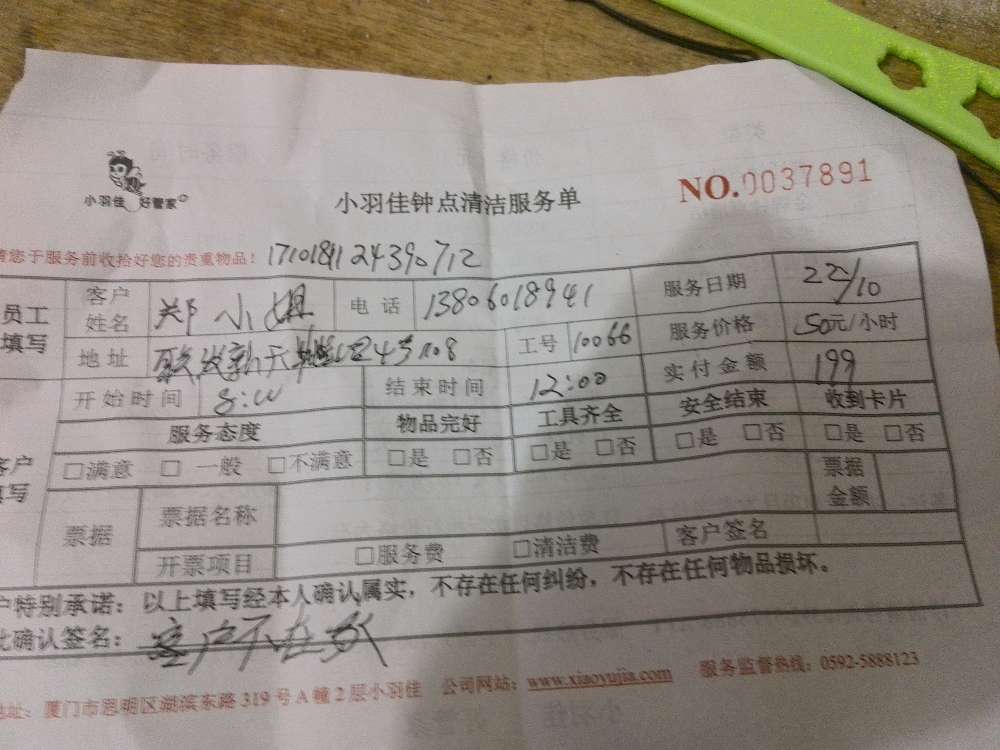 小羽佳 好管家
小羽佳钟点清洁服务单
NO.0037891
请您于服务前收拾好您的贵重物品!
1710181124390712
员工填写 客户姓名 郑小姐 电话 13806018941 服务日期 22/10
地址 联发新天地 45 1108 工号 10066 服务价格 50元/小时
开始时间 8:00 结束时间 12:00 实付金额 199
客户填写 服务态度 物品完好 工具齐全 安全结束 收到卡片
□满意 □一般 □不满意 □是 □否 □是 □否 □是 □否 □是 □否
票据 票据名称 票据金额
开票项目 □服务费 □清洁费 客户签名
户特别承诺：以上填写经本人确认属实，不存在任何纠纷，不存在任何物品损坏。
此确认签名：客户不在家
地址：厦门市思明区湖滨东路319号A幢2层小羽佳 公司网站：www.xiaoyujia.com 服务监督热线：0592-5888123